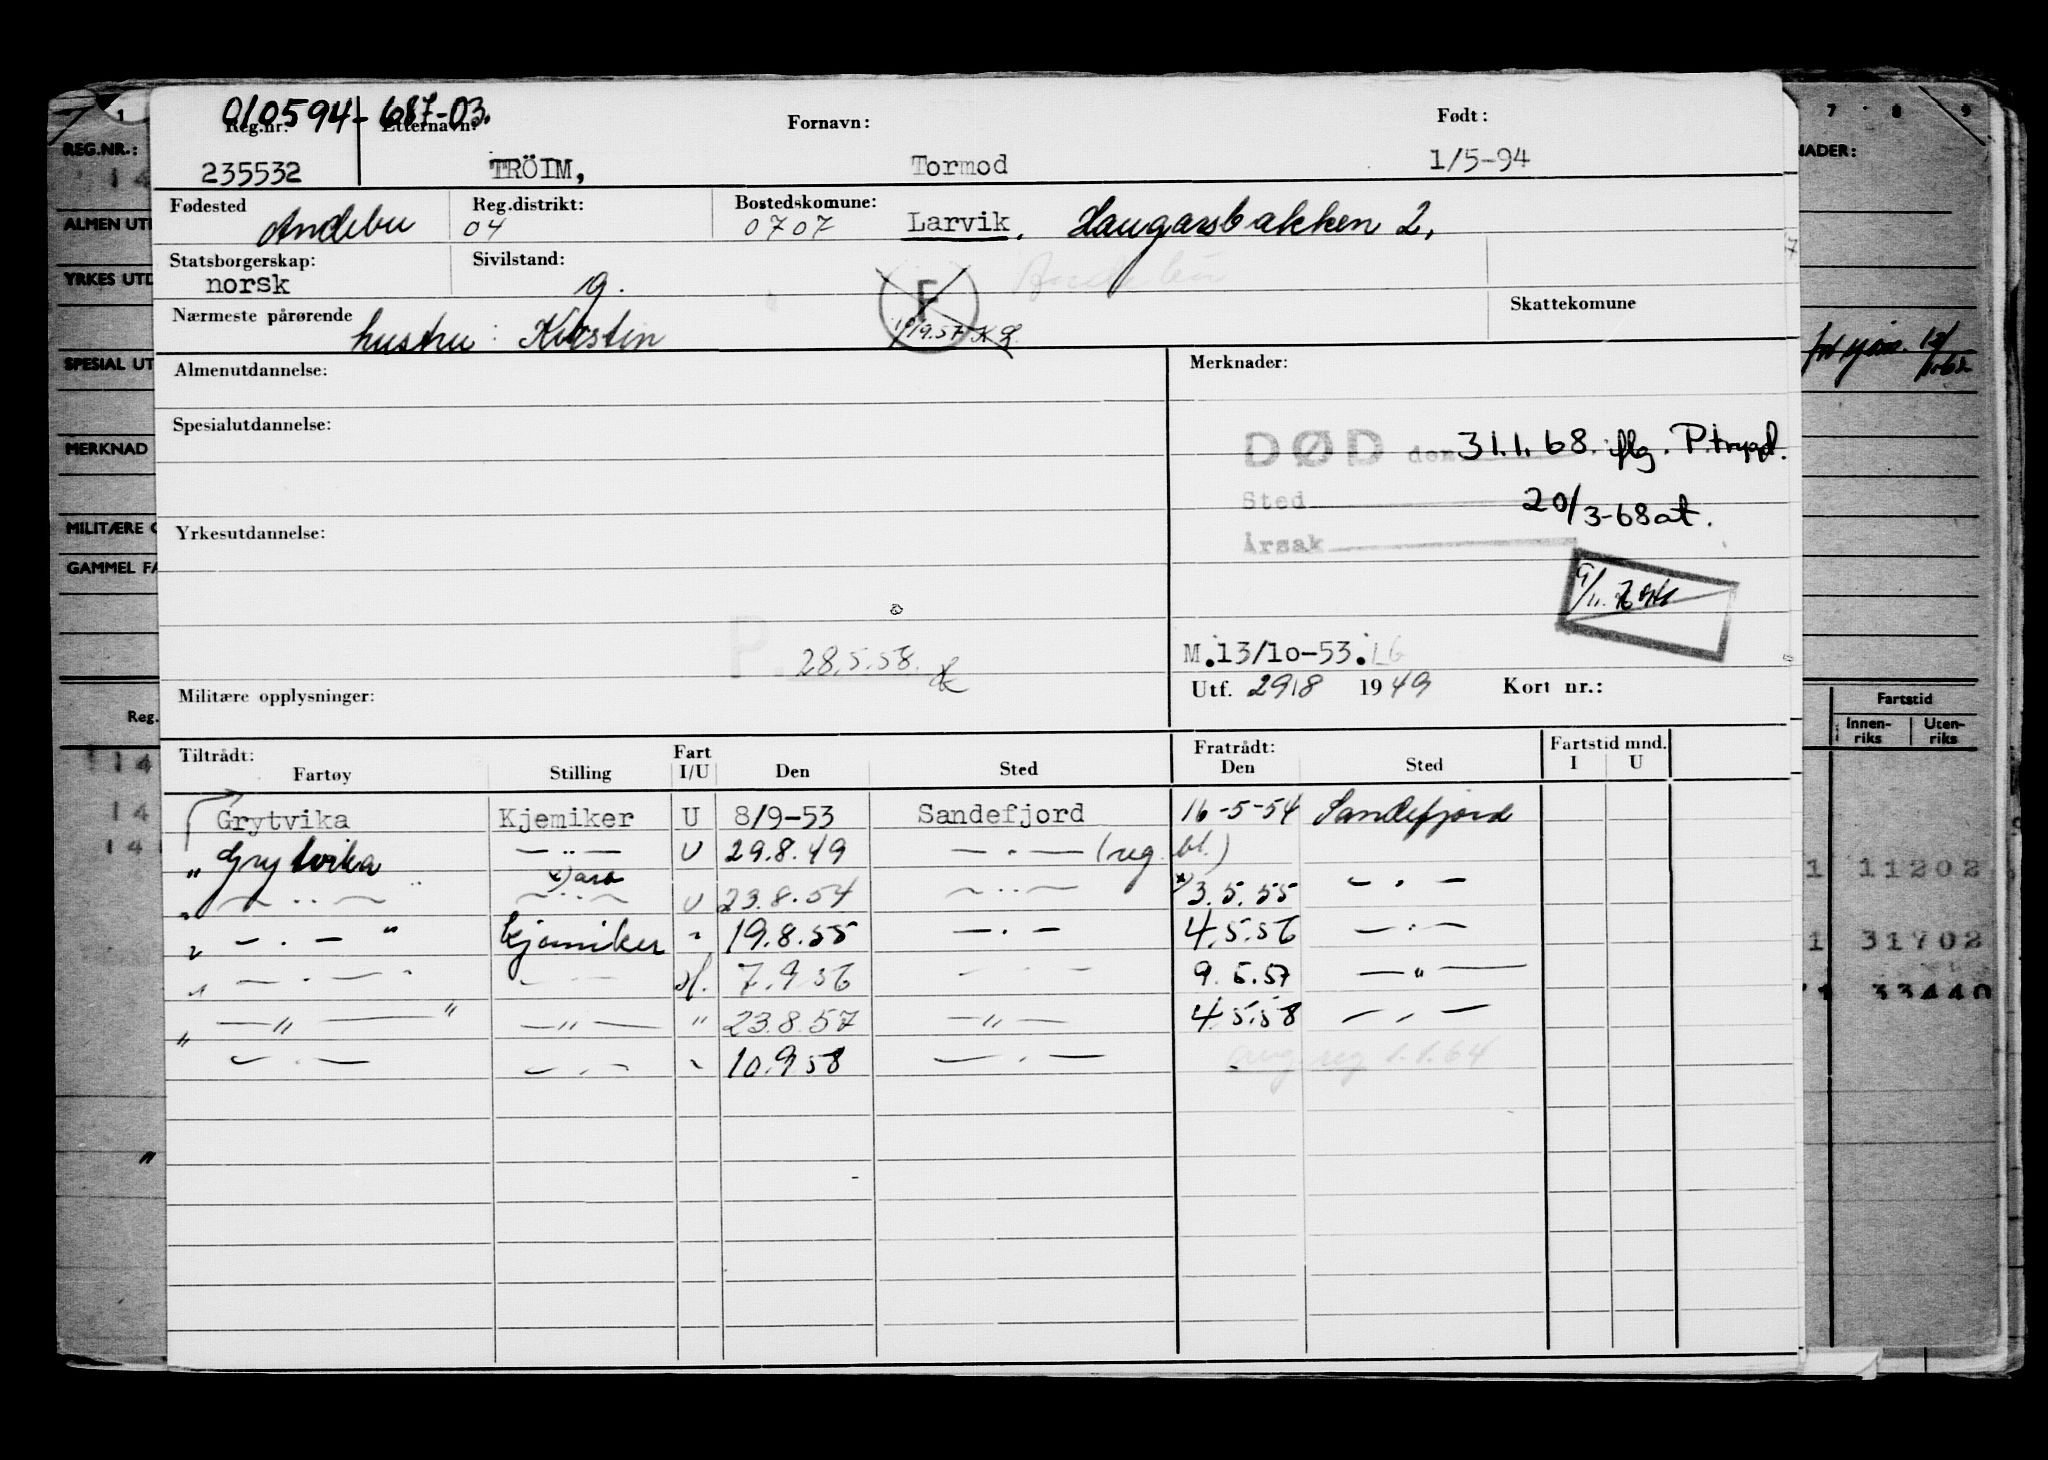 010594-687-03.
Reg.nr: Etternavn: Fornavn: Født:
235532 TRÖIM, Tormod 1/5-94
Fødested Reg.distrikt: Bostedskomune:
Andebu 04 0707 Larvik, Haugarsbakken 2,
Statsborgerskap: Sivilstand:
norsk g. F Andebu
Nærmeste pårørende Skattekomune
hustru: Kirstin
Almenutdannelse: Merknader:
Spesialutdannelse:
DØD den 31.1.68. iflg. P.trygd.
Sted 20/3-68 at.
Yrkesutdannelse:
Årsak
P. 28.5.58.
M.13/10-53. LG
Militære opplysninger: Utf. 29/8 1949 Kort nr.:
Tiltrådt: Fart Fratrådt: Fartstid mnd.
Fartøy Stilling I/U Den Sted Den Sted I U
Grytvika Kjemiker U 8/9-53 Sandefjord 16-5-54 Sandefjord
" Grytvika — " — U 29.8.49 — " — (reg. bl.)
" — " — — " — U 23.8.54 — " — x) 3.5.55 — " —
" — " — " kjemiker " 19.8.55 — " — 4.5.56 — " —
" — " — — " — 7.9.56 — " — 9.5.57 — " —
" — " — " — " — " 23.8.57 — " — 4.5.58 — " —
— " — — " — " 10.9.58 — " — avg. reg 1.1.64
1
REG.NR.:
14
ALMEN UTD
YRKES UTD
SPESIAL UT
MERKNAD
MILITÆRE O
GAMMEL FA
Reg.
114
14
141
"
7 8 9
NADER:
Fartstid
Innen-riks Uten-riks
1 11202
1 31702
1 33440